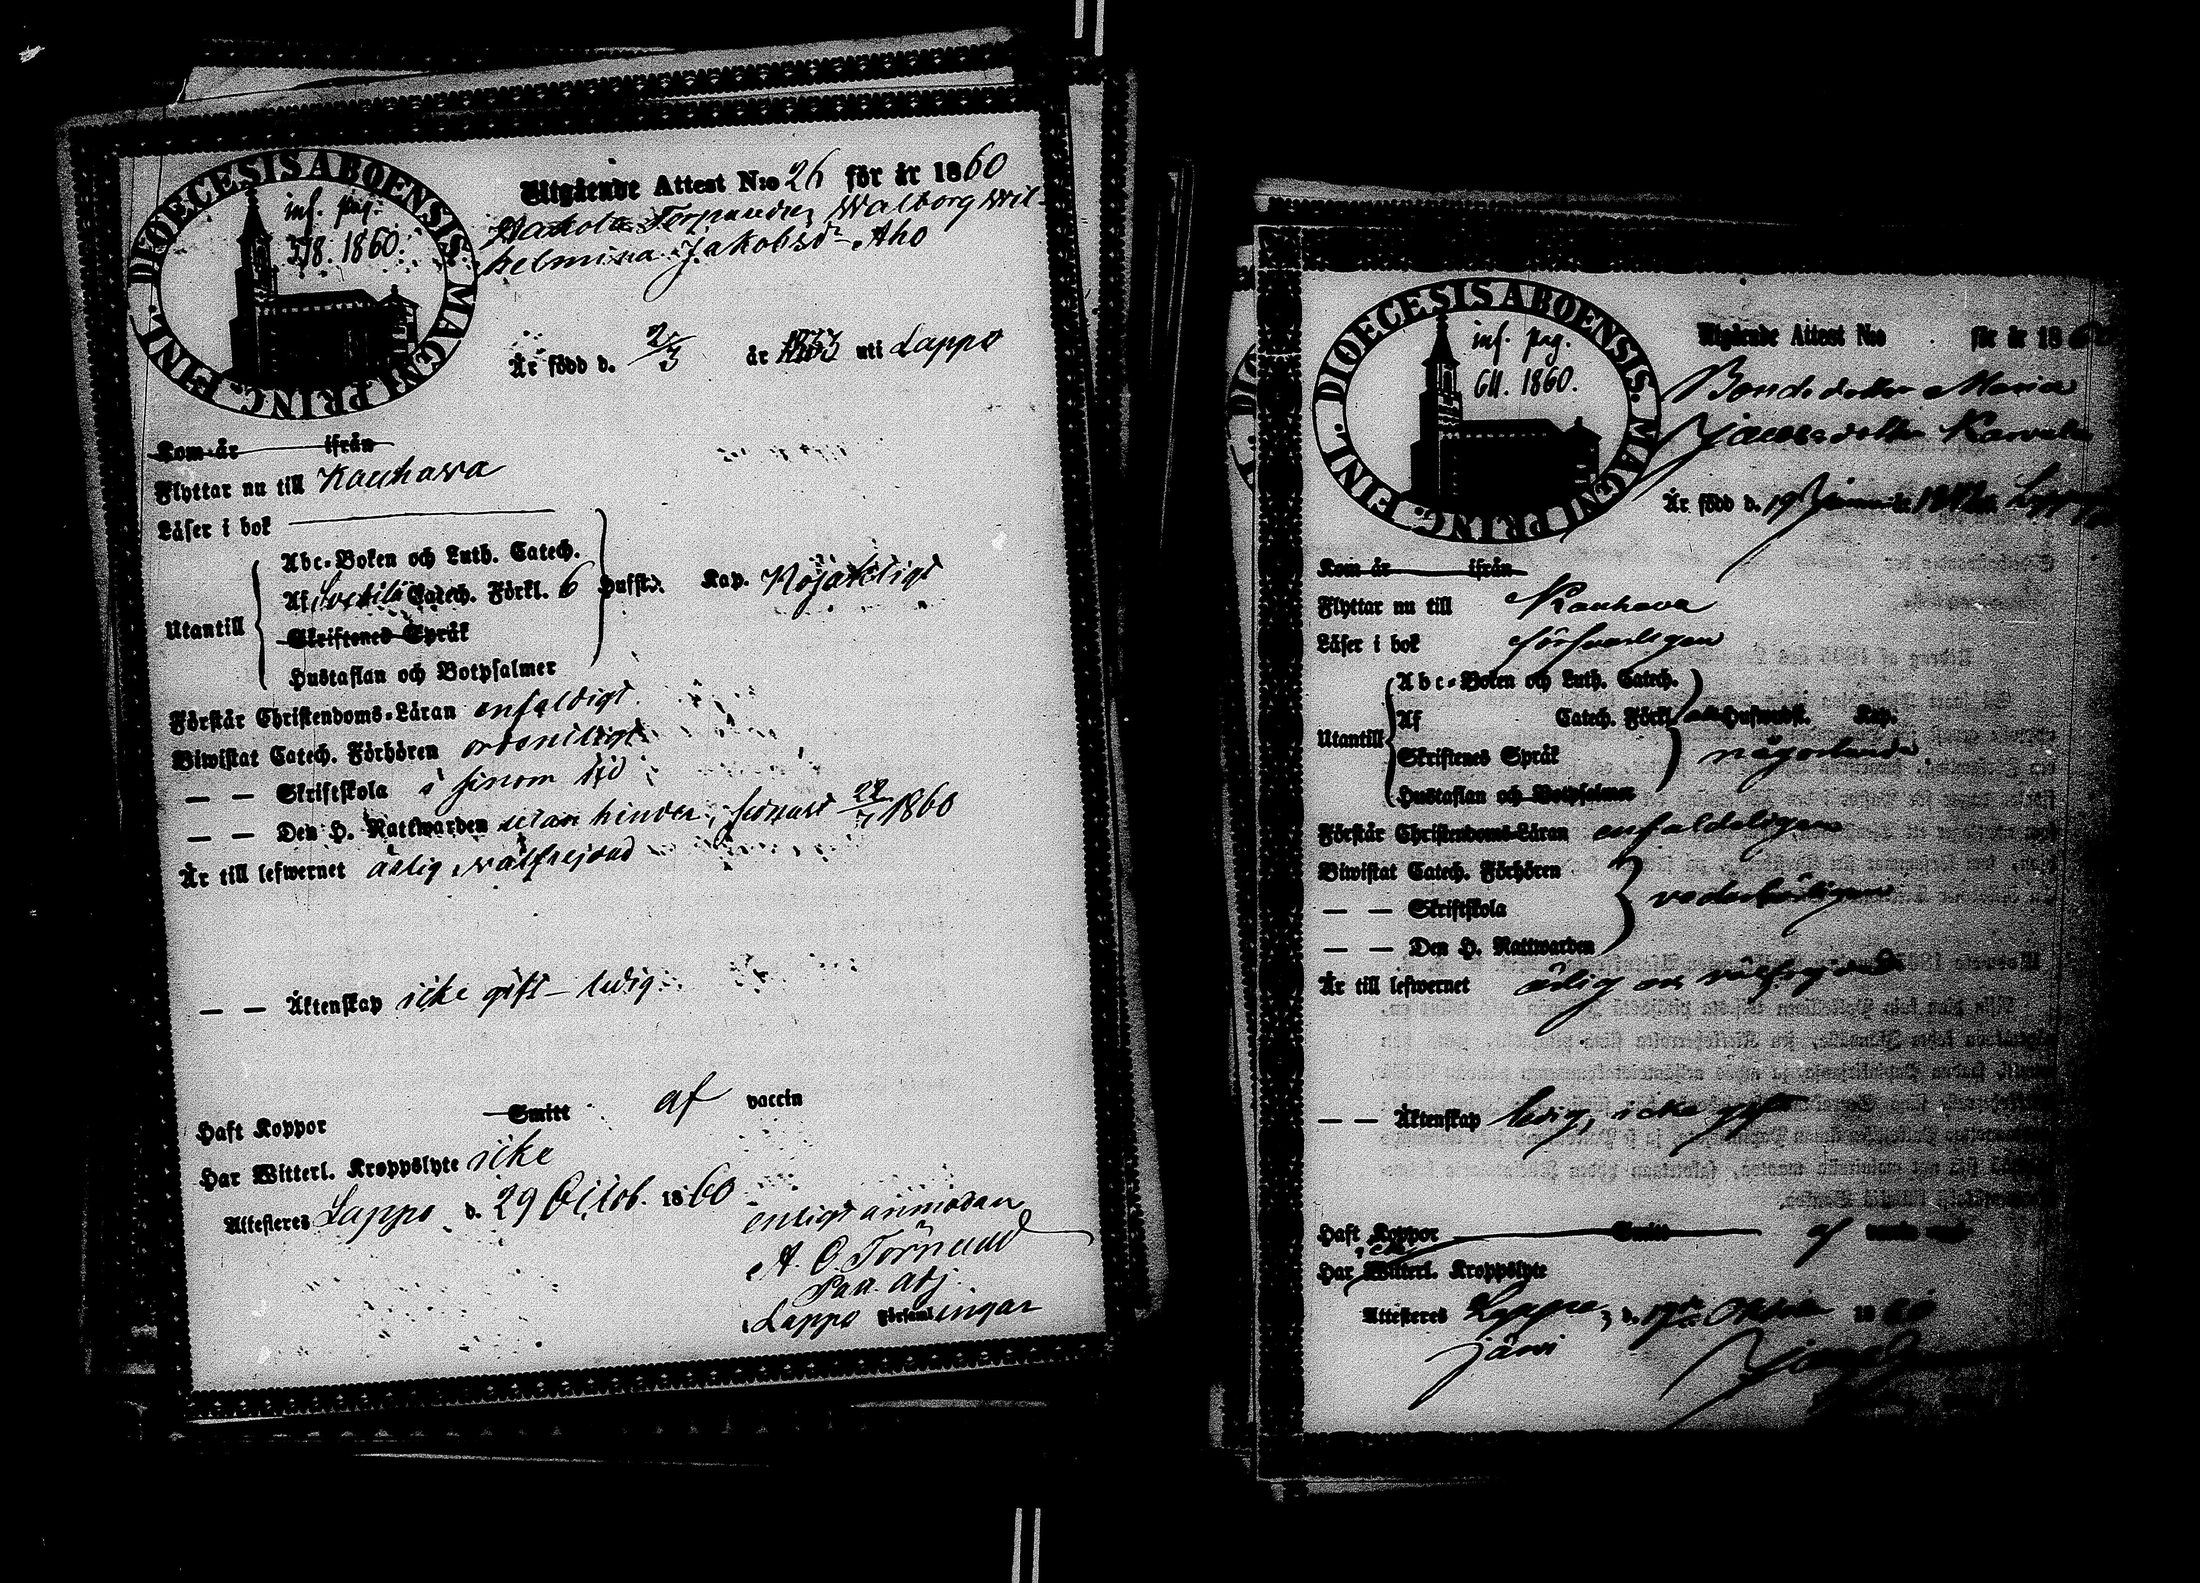 DIOECESIS ABOENSIS. MAGNI PRINC. FINL.
inf. pag.
378. 1860.
Utgående Attest N:o 26 för år 1860
Torparedr, Walborg Wil-
helmina Jakobsdr Aho
Är född d. 2/3 år uti Lappo
Kom år ifrån
Flyttar nu till Kauhava
Läser i bok
Utantill
Abc-Boken och Luth. Catech.
Af Svebilii Catech. Förkl. 6 Hufst. Kap. Nöjaktligt
Skriftenes Språk
Hustaflan och Botpsalmer
Förstår Christendoms-Läran enfaldigt
Biwistat Catech. Förhören ordentligt
— — Skriftskola i sinom tid
— — Den H. Nattwarden utan hinder, senast 22/7 1860
Är till lefwernet ärlig, välfrejdad
— — Äktenskap icke gift - ledig
Haft Koppor Smitt af vaccin
Har Witterl. Kroppslyte icke
Attesteres Lappo d. 29 Octob. 1860
enligt anmodan
A. O. Törnudd
Pas. adj.
Lappo Församlingar
DIOECESIS ABOENSIS. MAGNI PRINC. FINL.
inf. pag.
611. 1860.
Utgående Attest N:o för år 186
Bondedotter Maria
Jacobsdotter
Är född d. 19 Januarii
Kom år ifrån
Flyttar nu till Kauhava
Läser i bok försvarligen
Utantill
Abc-Boken och Luth. Catech.
Af Catech. Förkl. Hufwudst. Kap.
Skriftenes Språk någorlunda
Hustaflan och Botpsalmer
Förstår Christendoms-Läran enfaldeligen
Biwistat Catech. Förhören
— — Skriftskola vederbörligen
— — Den H. Nattwarden
Är till lefwernet ärlig och välfrejdad
— — Äktenskap ledig, icke gift
Haft Koppor Smitt af
icke
Har Witterl. Kroppslyte
Attesteres Lappa, d. 19de 1860
järvi